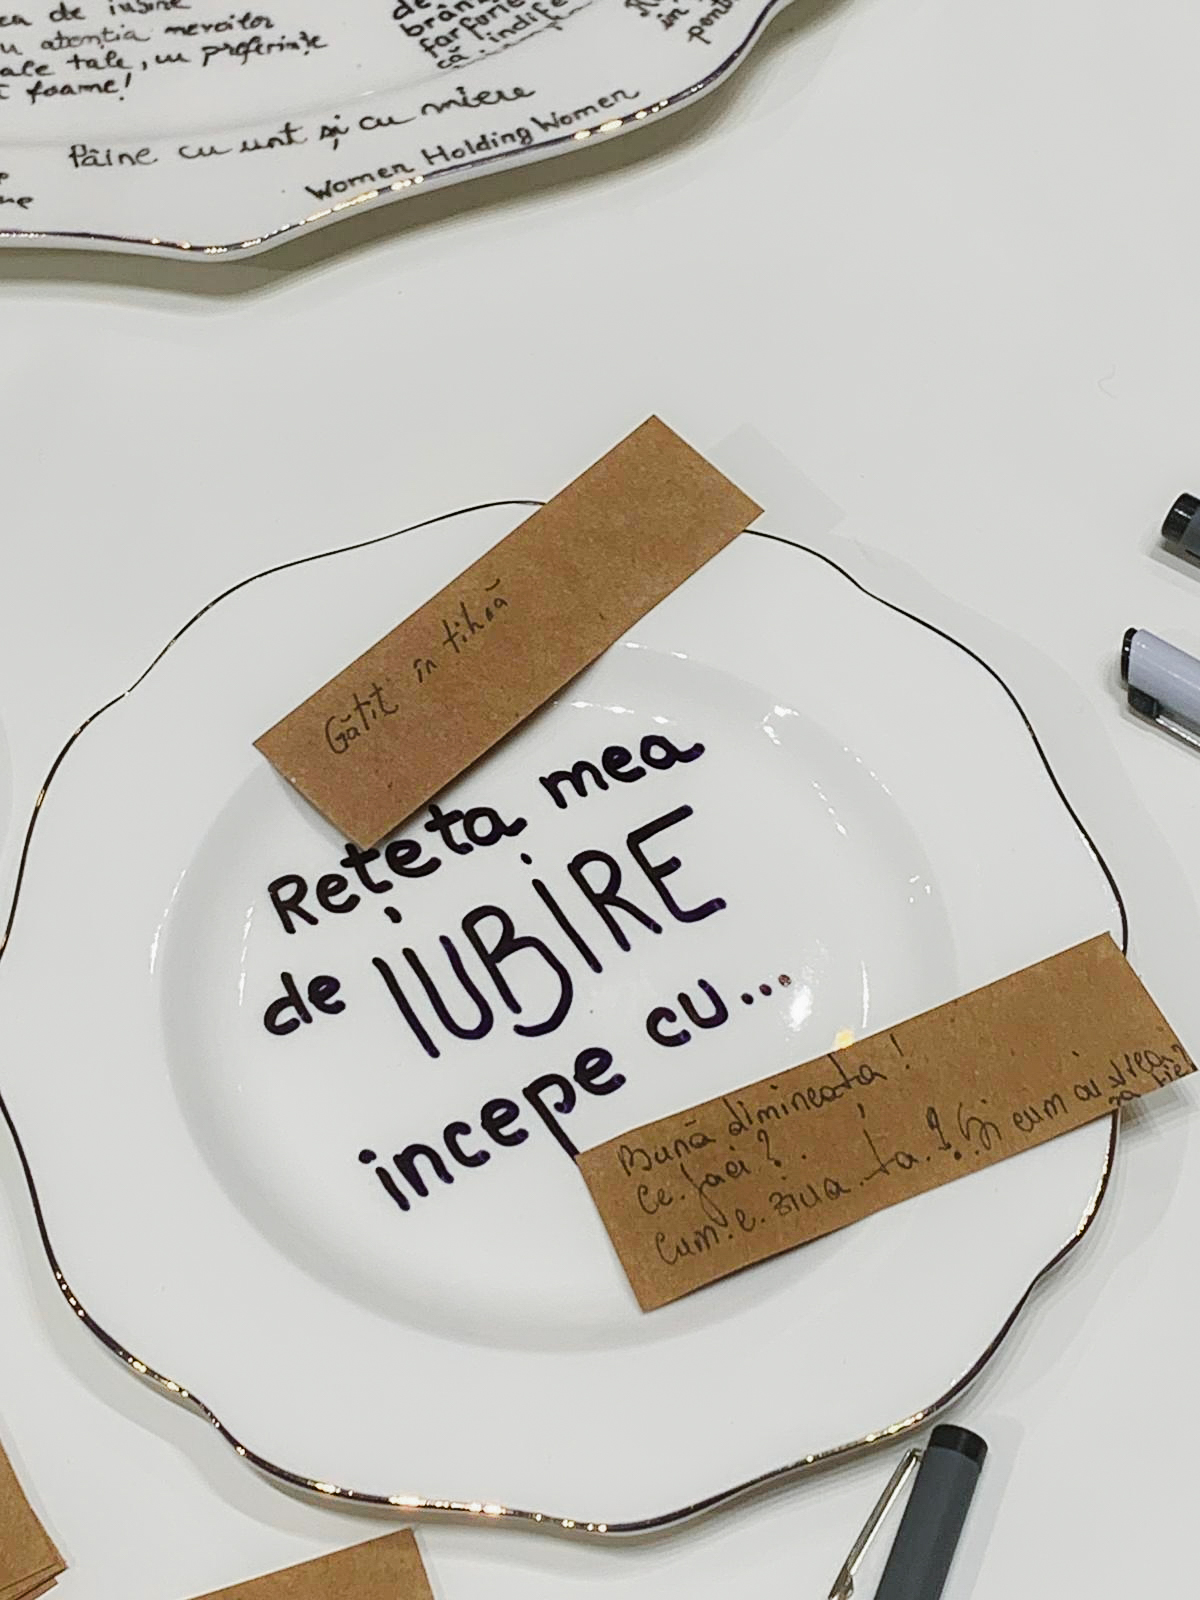 de iubire
atenția mereilor
ale tale, cu preferințe
foame!
farfurie
că indife
Pâine cu unt și cu miere
Women Holding Women
Gătit în tihnă
Rețeta mea
de IUBIRE
începe cu...
Bună dimineața!
Ce faci?
Cum e ziua ta? Și cum ai vrea
să fie?